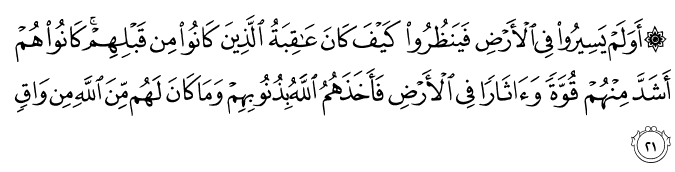 ۞ أَوَلَمْ يَسِيرُوا۟ فِى ٱلْأَرْضِ فَيَنظُرُوا۟ كَيْفَ كَانَ عَـٰقِبَةُ ٱلَّذِينَ كَانُوا۟ مِن قَبْلِهِمْ ۚ كَانُوا۟ هُمْ
أَشَدَّ مِنْهُمْ قُوَّةً وَءَاثَارًا فِى ٱلْأَرْضِ فَأَخَذَهُمُ ٱللَّهُ بِذُنُوبِهِمْ وَمَا كَانَ لَهُم مِّنَ ٱللَّهِ مِن وَاقٍ
٢١